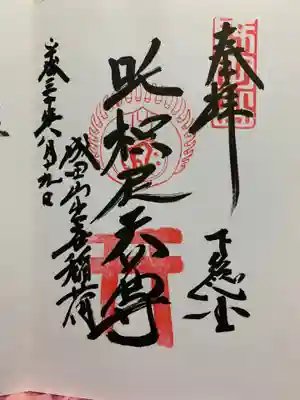 奉拝
下総国
吒枳尼天尊
成田山出世稲荷
平成三十年八月九日